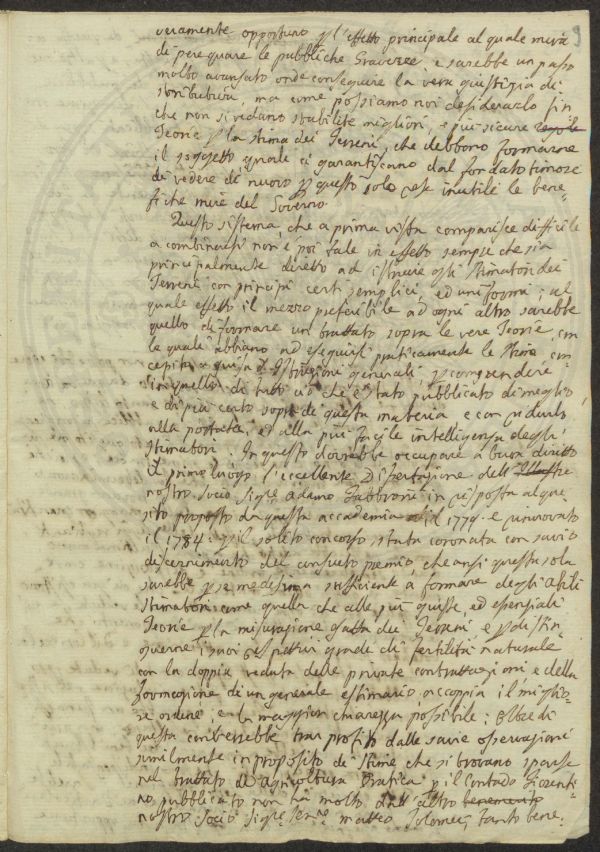 9
veramente opportuno p l'effetto principale al quale mira
di perequare le pubbliche Gravezze, e sarebbe un passo
molto avanzato onde conseguire la vera giustizia di
stributiva, ma come possiamo noi desiderarlo fin
che non si vedano stabilite migliori, e più sicure
Teorie p la stima dei Terreni, che debbono formarne
il soggetto quale ci garantiscano dal fondato timore
di vedere di nuovo p questo solo rese inutili le bene=
fiche mire del Governo
Questo sistema, che a prima vista comparisce difficile
a combinarsi non è poi tale in effetto sempre che sia
principalmente diretto ad istruire gli Stimatori dei
Terreni con principi certi semplici, ed uniformi; al
quale effetto il mezzo preferibile ad ogni altro sarebbe
quello di formare un trattato sopra le vere Teorie, con
le quali abbiano ad eseguirsi praticamente le Stime, con
a guisa d'Istruzioni generali, p comprendere
in quello di tutto ciò che è stato pubblicato di meglio,
e di più certo sopra di questa materia e con ridurlo
alla portata, ed alla più facile intelligenza degli
Stimatori. In questo dovrebbe occupare a buon diritto
il primo luogo l'eccellente Dissertazione dell' Illustre
nostro Socio Sigre. Adamo Fabbroni in risposta al que=
sito proposto da questa accademia il 1779. e rinnovato
il 1784. p il solito concorso stata coronata con savio
discernimento del consueto premio, che anzi questa sola
sarebbe p se medesima sufficiente a formare degli abili
Stimatori come quella che alle più giuste, ed essenziali
Teorie p la misurazione esatta dei Terreni e p distin
guerne i suoi respettivi gradi di fertilità naturale
con la doppia veduta delle private contrattazioni e della
formazione di un generale estimario accoppia il miglio=
re ordine, e la maggior chiarezza possibile; Oltre di
questa converrebbe trar profitto dalle savie osservazioni
similmente in proposito di Stime che si trovano sparse
nel trattato di Agricoltura Pratica p il Contado Fiorenti=
no, pubblicato non ha molto dall' altro benemerito
nostro Socio Sigre. Senre. Matteo Tolomei, Tanto bene=